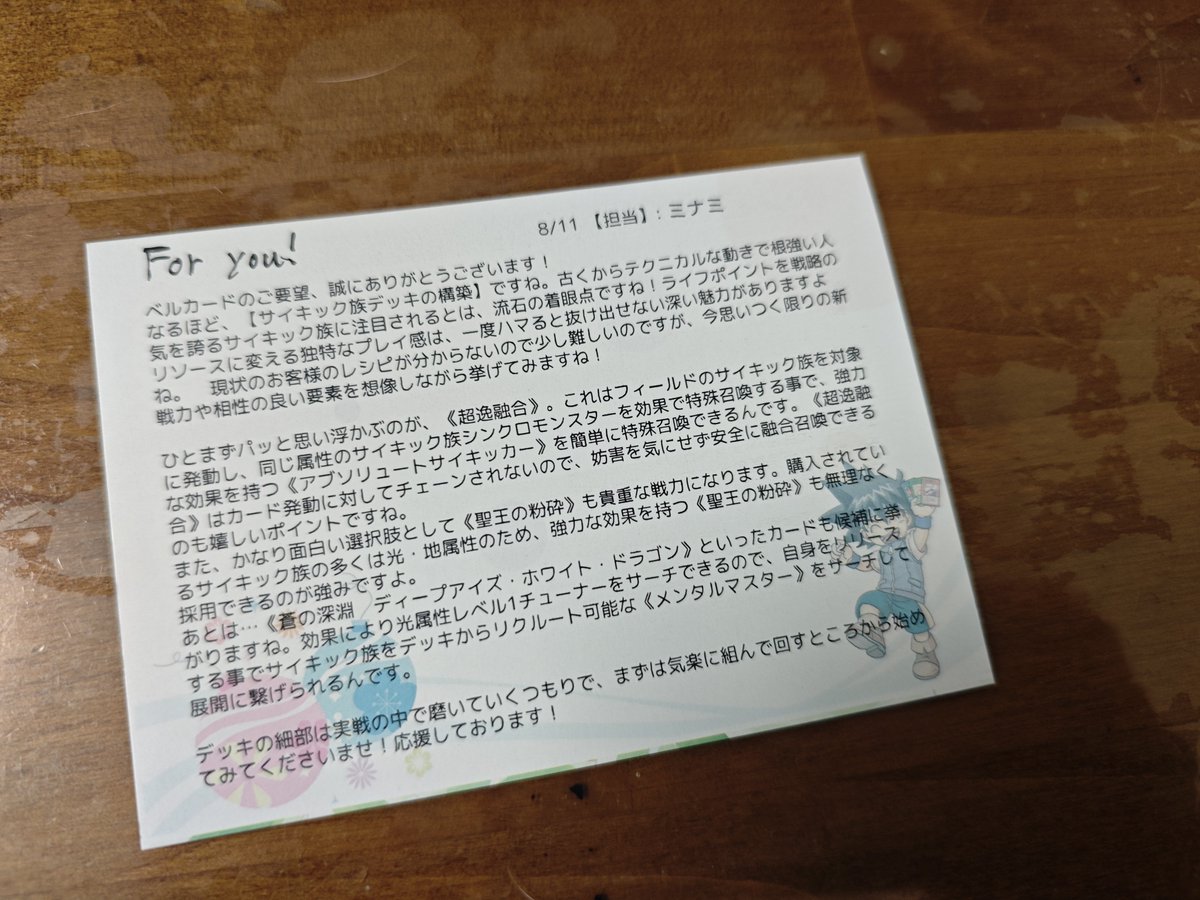 For you!
8/11 【担当】: ミナミ
ベルカードのご要望、誠にありがとうございます！
なるほど、【サイキック族デッキの構築】ですね。古くからテクニカルな動きで根強い人
気を誇るサイキック族に注目されるとは、流石の着眼点ですね！ライフポイントを戦略の
リソースに変える独特なプレイ感は、一度ハマると抜け出せない深い魅力がありますよ
ね。　現状のお客様のレシピが分からないので少し難しいのですが、今思いつく限りの新
戦力や相性の良い要素を想像しながら挙げてみますね！
ひとまずパッと思い浮かぶのが、《超逸融合》。これはフィールドのサイキック族を対象
に発動し、同じ属性のサイキック族シンクロモンスターを効果で特殊召喚する事で、強力
な効果を持つ《アブソリュートサイキッカー》を簡単に特殊召喚できるんです。《超逸融
合》はカード発動に対してチェーンされないので、妨害を気にせず安全に融合召喚できる
のも嬉しいポイントですね。
また、かなり面白い選択肢として《聖王の粉砕》も貴重な戦力になります。購入されてい
るサイキック族の多くは光・地属性のため、強力な効果を持つ《聖王の粉砕》も無理なく
採用できるのが強みですよ。
あとは…《蒼の深淵／ディープアイズ・ホワイト・ドラゴン》といったカードも候補に挙
がりますね。効果により光属性レベル1チューナーをサーチできるので、自身をリリース
する事でサイキック族をデッキからリクルート可能な《メンタルマスター》をサーチして
展開に繋げられるんです。
デッキの細部は実戦の中で磨いていくつもりで、まずは気楽に組んで回すところから始め
てみてくださいませ！応援しております！